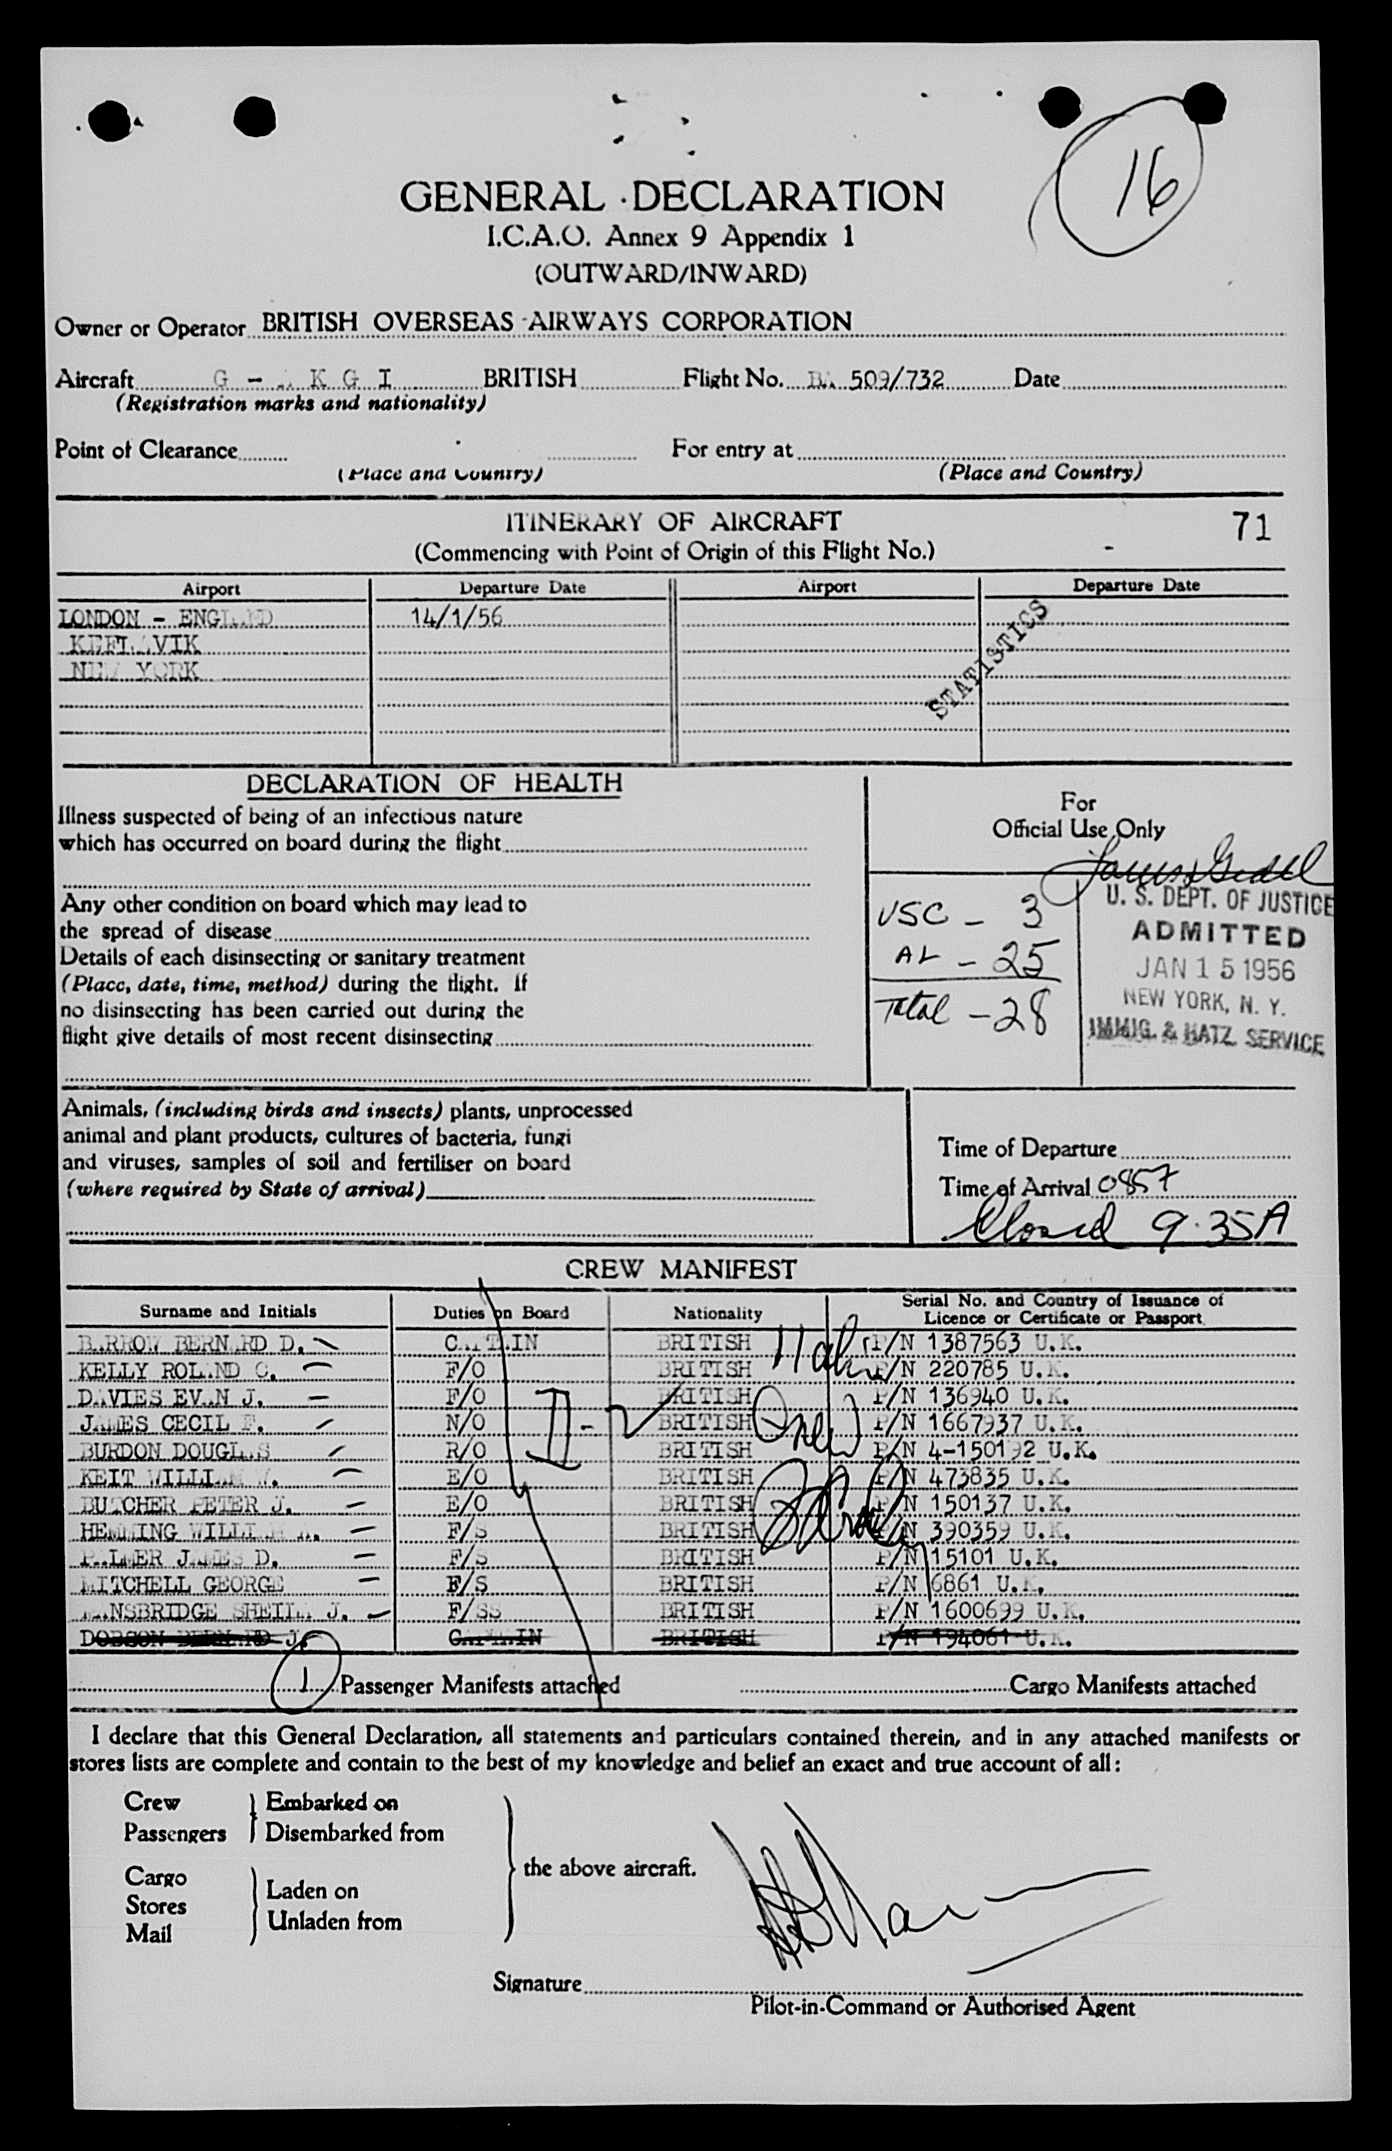 16
GENERAL DECLARATION
I.C.A.O. Annex 9 Appendix 1
(OUTWARD/INWARD)
Owner or Operator BRITISH OVERSEAS AIRWAYS CORPORATION
Aircraft G - K G I BRITISH Flight No. 509/732 Date
(Registration marks and nationality)
Point of Clearance For entry at
(Place and Country) (Place and Country)
ITINERARY OF AIRCRAFT 71
(Commencing with Point of Origin of this Flight No.)
Airport Departure Date Airport Departure Date
LONDON - ENGLAND 14/1/56
KEFLAVIK
NEW YORK
STATISTICS
DECLARATION OF HEALTH
Illness suspected of being of an infectious nature
which has occurred on board during the flight
Any other condition on board which may lead to
the spread of disease
Details of each disinsecting or sanitary treatment
(Place, date, time, method) during the flight. If
no disinsecting has been carried out during the
flight give details of most recent disinsecting
For
Official Use Only
USC - 3
AL - 25
Total - 28
U. S. DEPT. OF JUSTICE
ADMITTED
JAN 15 1956
NEW YORK, N. Y.
IMMIG. & NATZ. SERVICE
Animals, (including birds and insects) plants, unprocessed
animal and plant products, cultures of bacteria, fungi
and viruses, samples of soil and fertiliser on board
(where required by State of arrival)
Time of Departure
Time of Arrival 0857
Closed 9.35A
CREW MANIFEST
Surname and Initials Duties on Board Nationality Serial No. and Country of Issuance of
Licence or Certificate or Passport
BARROW BERNARD D. CAPTAIN BRITISH P/N 1387563 U.K.
KELLY ROLAND C. F/O BRITISH P/N 220785 U.K.
DAVIES EVAN J. F/O BRITISH P/N 136940 U.K.
JAMES CECIL F. N/O BRITISH P/N 1667937 U.K.
BURDON DOUGLAS R/O BRITISH P/N 4-150192 U.K.
KEIT WILLIAM W. E/O BRITISH P/N 473835 U.K.
BUTCHER PETER J. E/O BRITISH P/N 150137 U.K.
HEMMING WILLIAM F/S BRITISH P/N 390359 U.K.
PALMER JAMES D. F/S BRITISH P/N 15101 U.K.
MITCHELL GEORGE F/S BRITISH P/N 6861 U.K.
SHEILA J. F/SS BRITISH P/N 1600699 U.K.
DOBSON BERNARD J. CAPTAIN BRITISH P/N 194061 U.K.
1 Passenger Manifests attached Cargo Manifests attached
I declare that this General Declaration, all statements and particulars contained therein, and in any attached manifests or
stores lists are complete and contain to the best of my knowledge and belief an exact and true account of all:
Crew Embarked on
Passengers Disembarked from
the above aircraft.
Cargo
Stores Laden on
Mail Unladen from
Signature
Pilot-in-Command or Authorised Agent